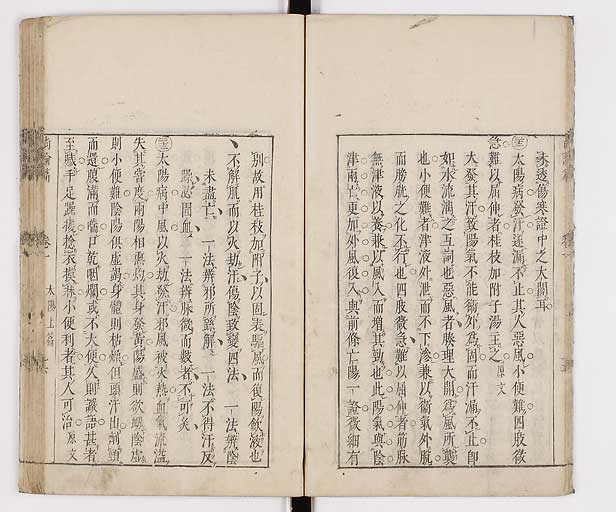 未透傷寒證中之大關耳
太陽病發汗遂漏不止其人惡風小便難四肢微
急難以屈伸者桂枝加附子湯主之原文
大發其汗致陽氣不能衛外為固而汗漏不止即
如水流漓之互詞也惡風者腠理大開為風所襲
也小便難者津液外泄而不下滲兼以衛氣外脫
而膀胱之化不行也四肢微急難以屈伸者筋脉
無津液以養兼以風入而增其勁也此陽氣與陰
津兩亡更加外風復入與前條亡陽一證微細有
別故用桂枝加附子以固表驅風而復陽飲液也
不解肌而以火劫汗傷陰致變四法 一法辨陰
未盡亡 一法辨邪所繇解 一法不得汗反
躁必圊血 一法辨脉微而數者不可灸
太陽病中風以火劫發汗邪風被火熱血氣流溢
失其常度兩陽相熏灼其身發黃陽盛則欲衄陰虛
則小便難陰陽俱虛竭身體則枯燥但頭汗出劑頸
而還腹滿而喘口乾咽爛或不大便久則讝語甚者
至噦手足躁擾捻衣摸牀小便利者其人可治原文
尚論篇 卷一 太陽上篇